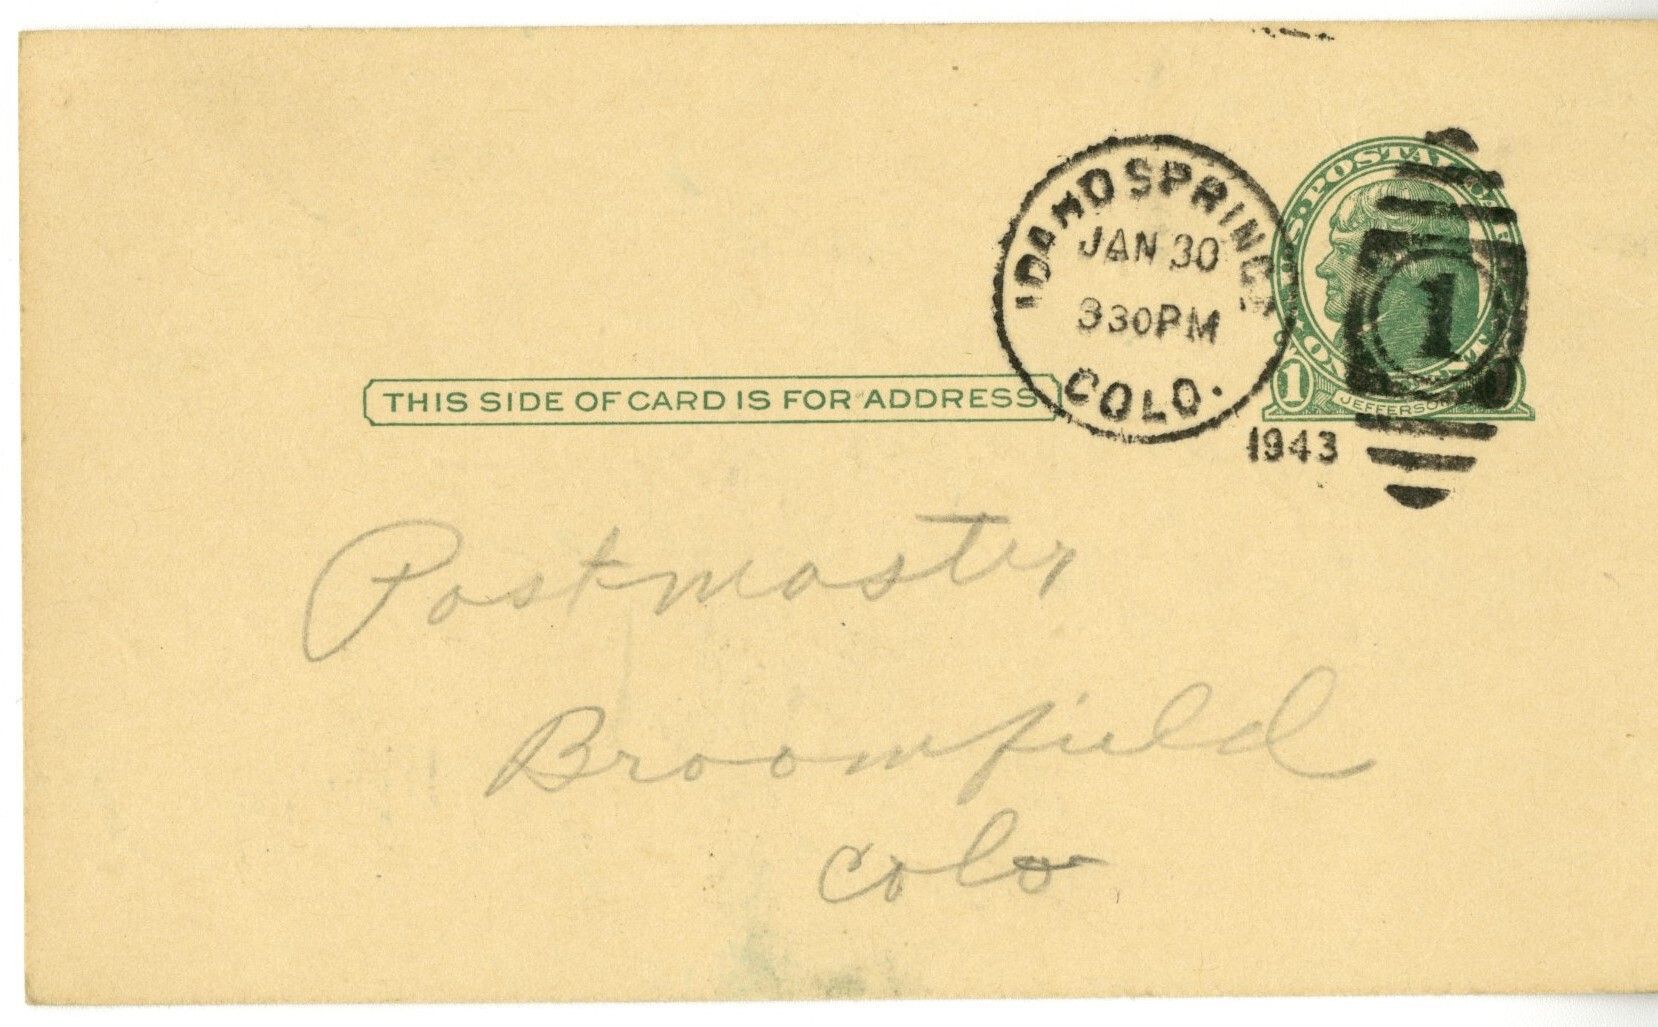 IDAHO SPRINGS
JAN 30
330PM
COLO.
1943
U.S. POSTAL CARD
1
JEFFERSON
1
THIS SIDE OF CARD IS FOR ADDRESS
Postmaster
Broomfield
Colo